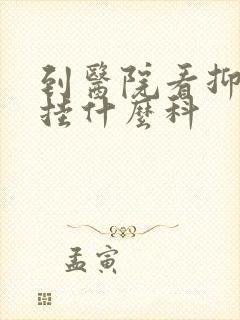 到醫院看抑
掛什麼科
孟寅